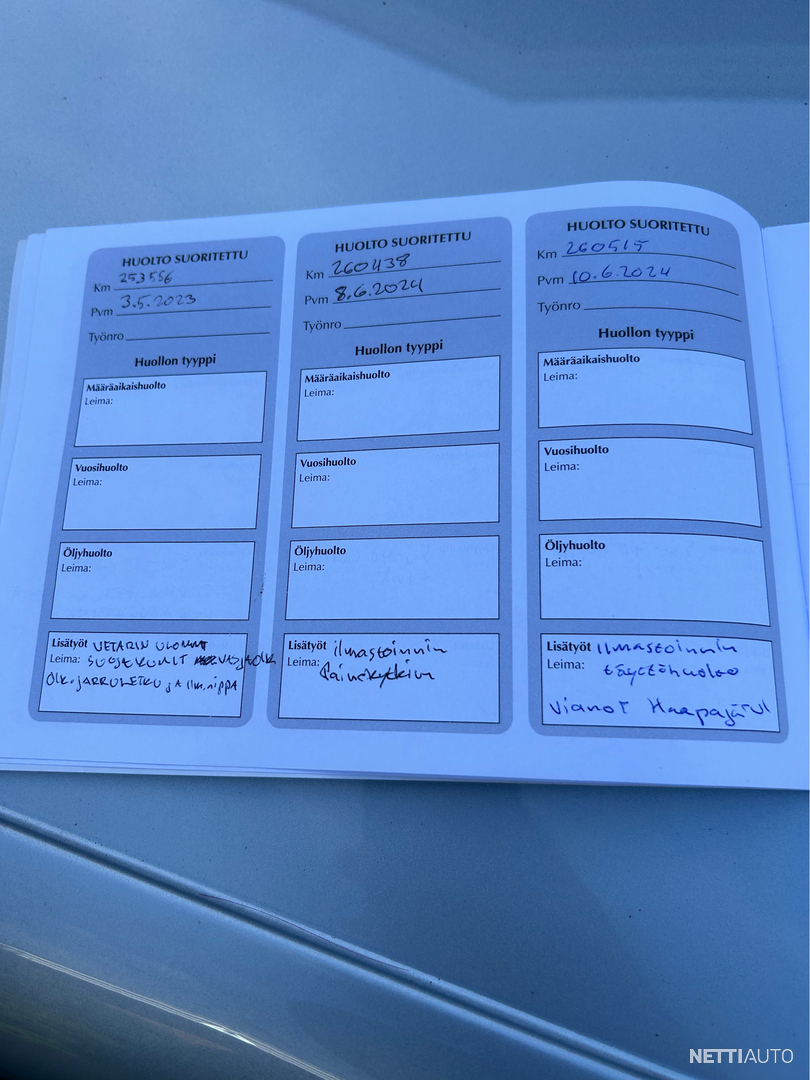 HUOLTO SUORITETTU
Km 253556
Pvm 3.5.2023
Työnro
Huollon tyyppi
Määräaikaishuolto
Leima:
Vuosihuolto
Leima:
Öljyhuolto
Leima:
Lisätyöt VETARIN ULOMMAT
Leima: SUOJAKUMIT
OIK.JARRULETKU JA ILM.NIPPA
HUOLTO SUORITETTU
Km 260438
Pvm 8.6.2024
Työnro
Huollon tyyppi
Määräaikaishuolto
Leima:
Vuosihuolto
Leima:
Öljyhuolto
Leima:
Lisätyöt ilmastoinnin
Leima: Painekytkin
HUOLTO SUORITETTU
Km 260515
Pvm 10.6.2024
Työnro
Huollon tyyppi
Määräaikaishuolto
Leima:
Vuosihuolto
Leima:
Öljyhuolto
Leima:
Lisätyöt Ilmastoinnin
Leima: täyttöhuolto
Vianor Haapajärvi
NETTIAUTO